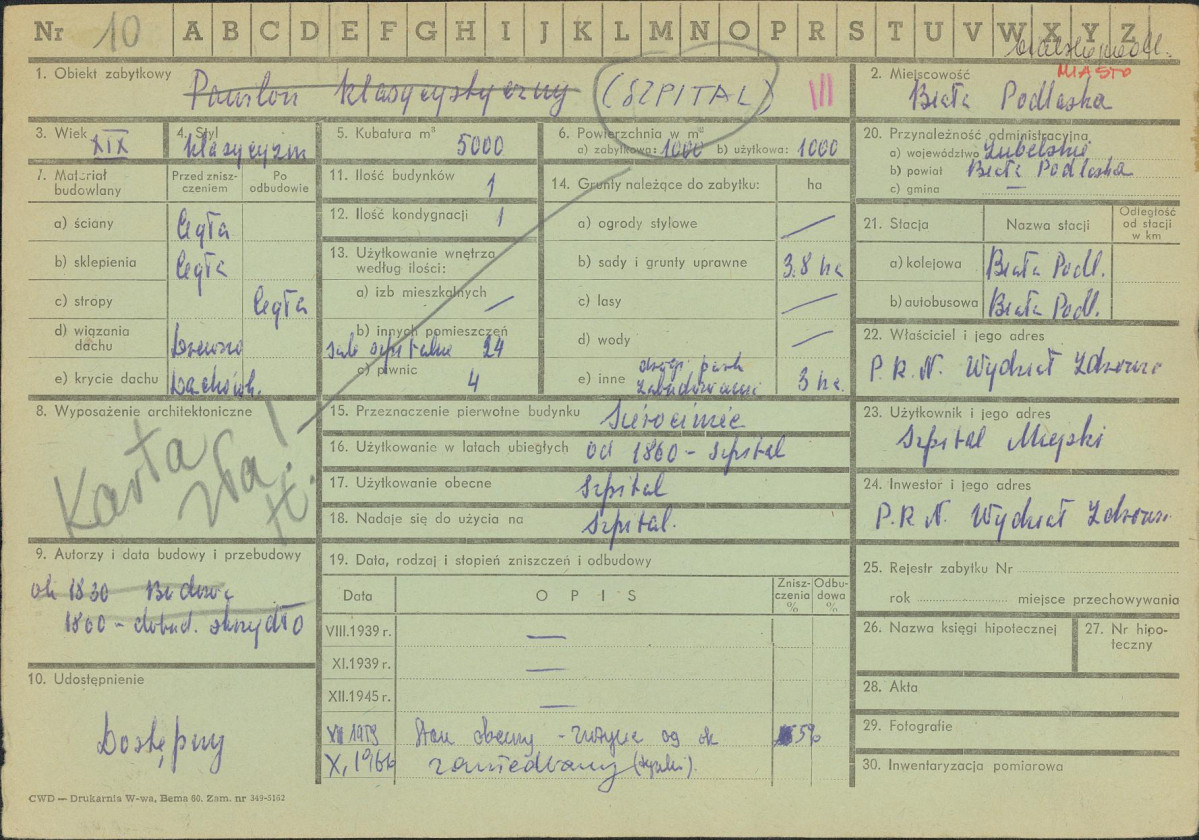 Nr 10 A B C D E F G H I J K L M N O P R S T U V W X Y Z
MIASTO
1. Obiekt zabytkowy Pawilon klasycystyczny (SZPITAL) III
2. Miejscowość Biała Podlaska
3. Wiek XIX
4. Styl klasycyzm
5. Kubatura m³ 5000
6. Powierzchnia w m²
a) zabytkowa: 1000 b) użytkowa: 1000
20. Przynależność administracyjna
a) województwo Lubelskie
b) powiat Biała Podlaska
c) gmina —
7. Materiał budowlany
Przed zniszczeniem
Po odbudowie
a) ściany Cegła
b) sklepienia Cegła
c) stropy Cegła
d) wiązania dachu Drewno
e) krycie dachu Dachówk.
11. Ilość budynków 1
12. Ilość kondygnacji 1
13. Użytkowanie wnętrza według ilości:
a) izb mieszkalnych —
b) innych pomieszczeń
sale szpitalne 24
c) piwnic 4
14. Grunty należące do zabytku: ha
a) ogrody stylowe —
b) sady i grunty uprawne 3.8 ha
c) lasy —
d) wody —
e) inne drogi park
zabudowania 3 ha.
21. Stacja
Nazwa stacji
Odległość od stacji w km
a) kolejowa Biała Podl.
b) autobusowa Biała Podl.
22. Właściciel i jego adres
P.R.N. Wydział Zdrowia
8. Wyposażenie architektoniczne
Karta
15. Przeznaczenie pierwotne budynku Sierociniec
16. Użytkowanie w latach ubiegłych od 1860 - szpital
17. Użytkowanie obecne szpital
18. Nadaje się do użycia na szpital.
23. Użytkownik i jego adres
Szpital Miejski
24. Inwestor i jego adres
P.R.N. Wydział Zdrowia
9. Autorzy i data budowy i przebudowy
ok 1830 Budowa
1860 - dobud. skrzydło
19. Data, rodzaj i stopień zniszczeń i odbudowy
Data
OPIS
Zniszczenia %
Odbudowa %
VIII.1939 r. —
XI.1939 r. —
XII.1945 r. —
VII 1959 Stan obecny - zużycie og ok 5%
X, 1966 zaniedbany
25. Rejestr zabytku Nr
rok miejsce przechowywania
26. Nazwa księgi hipotecznej
27. Nr hipoteczny
28. Akta
29. Fotografie
30. Inwentaryzacja pomiarowa
10. Udostępnienie
Dostępny
CWD — Drukarnia W-wa, Bema 60. Zam. nr 349-5162